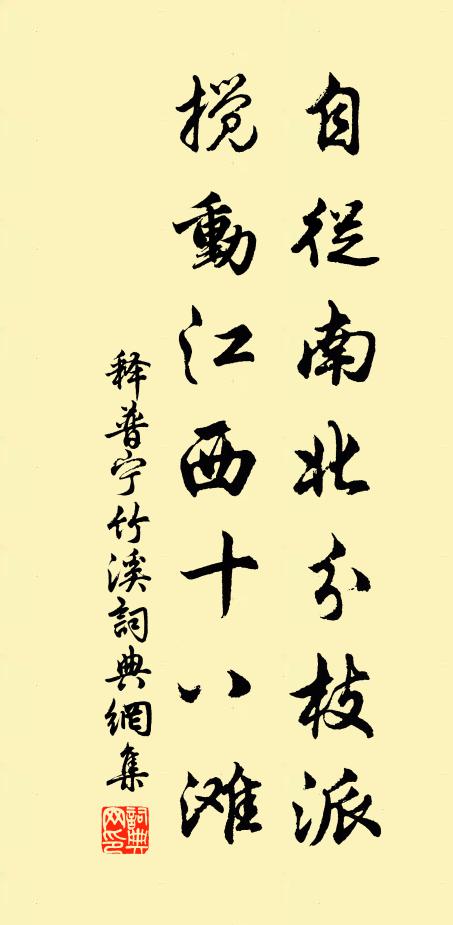 自從南北分枝派
搅動江西十八滩
释普宁竹溪詞典網集
詞典網印